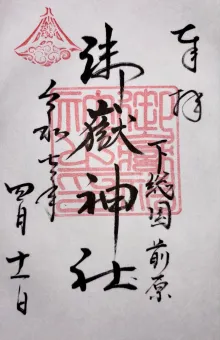 奉拝
下総国前原
御嶽神社
令和七年
四月十一日